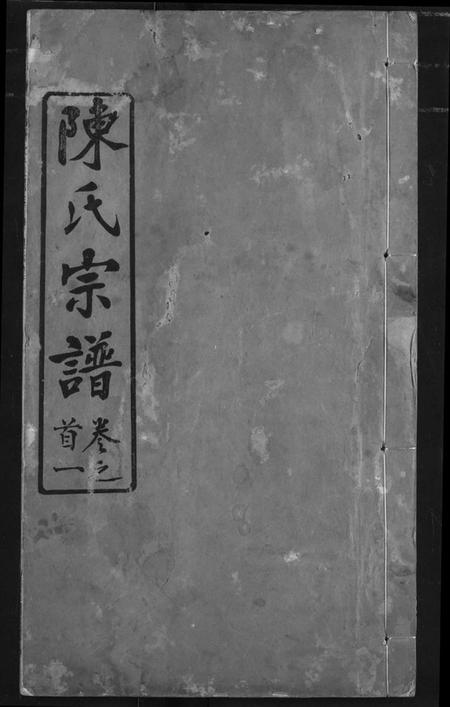 陳氏宗譜
卷之
首一